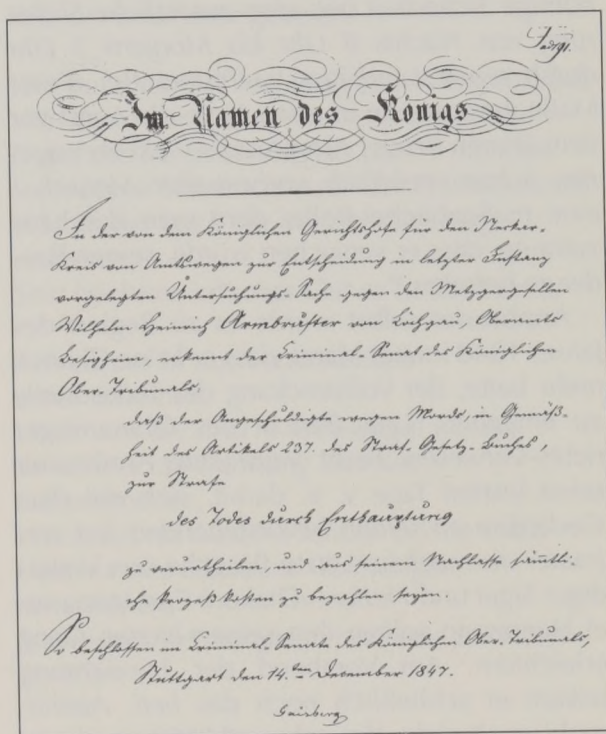 ad 91.
Im Namen des Königs
In der von dem Königlichen Gerichtshofe für den Neckar-
Kreis von Amtswegen zur Entscheidung in letzter Instanz
vorgelegten Untersuchungs-Sache gegen den Metzgergesellen
Wilhelm Heinrich Armbruster von Löchgau, Oberamts
Besigheim, erkennt der Criminal-Senat des Königlichen
Ober-Tribunals:
daß der Angeschuldigte wegen Mords, in Gemäß-
heit des Artikels 237. des Straf-Gesetz-Buches,
zur Strafe
des Todes durch Enthauptung
zu verurtheilen, und aus seinem Nachlasse sämmtli-
che Prozeßkosten zu bezahlen seyen.
So beschlossen im Criminal-Senate des Königlichen Ober-Tribunals,
Stuttgart den 14.ten December 1847.